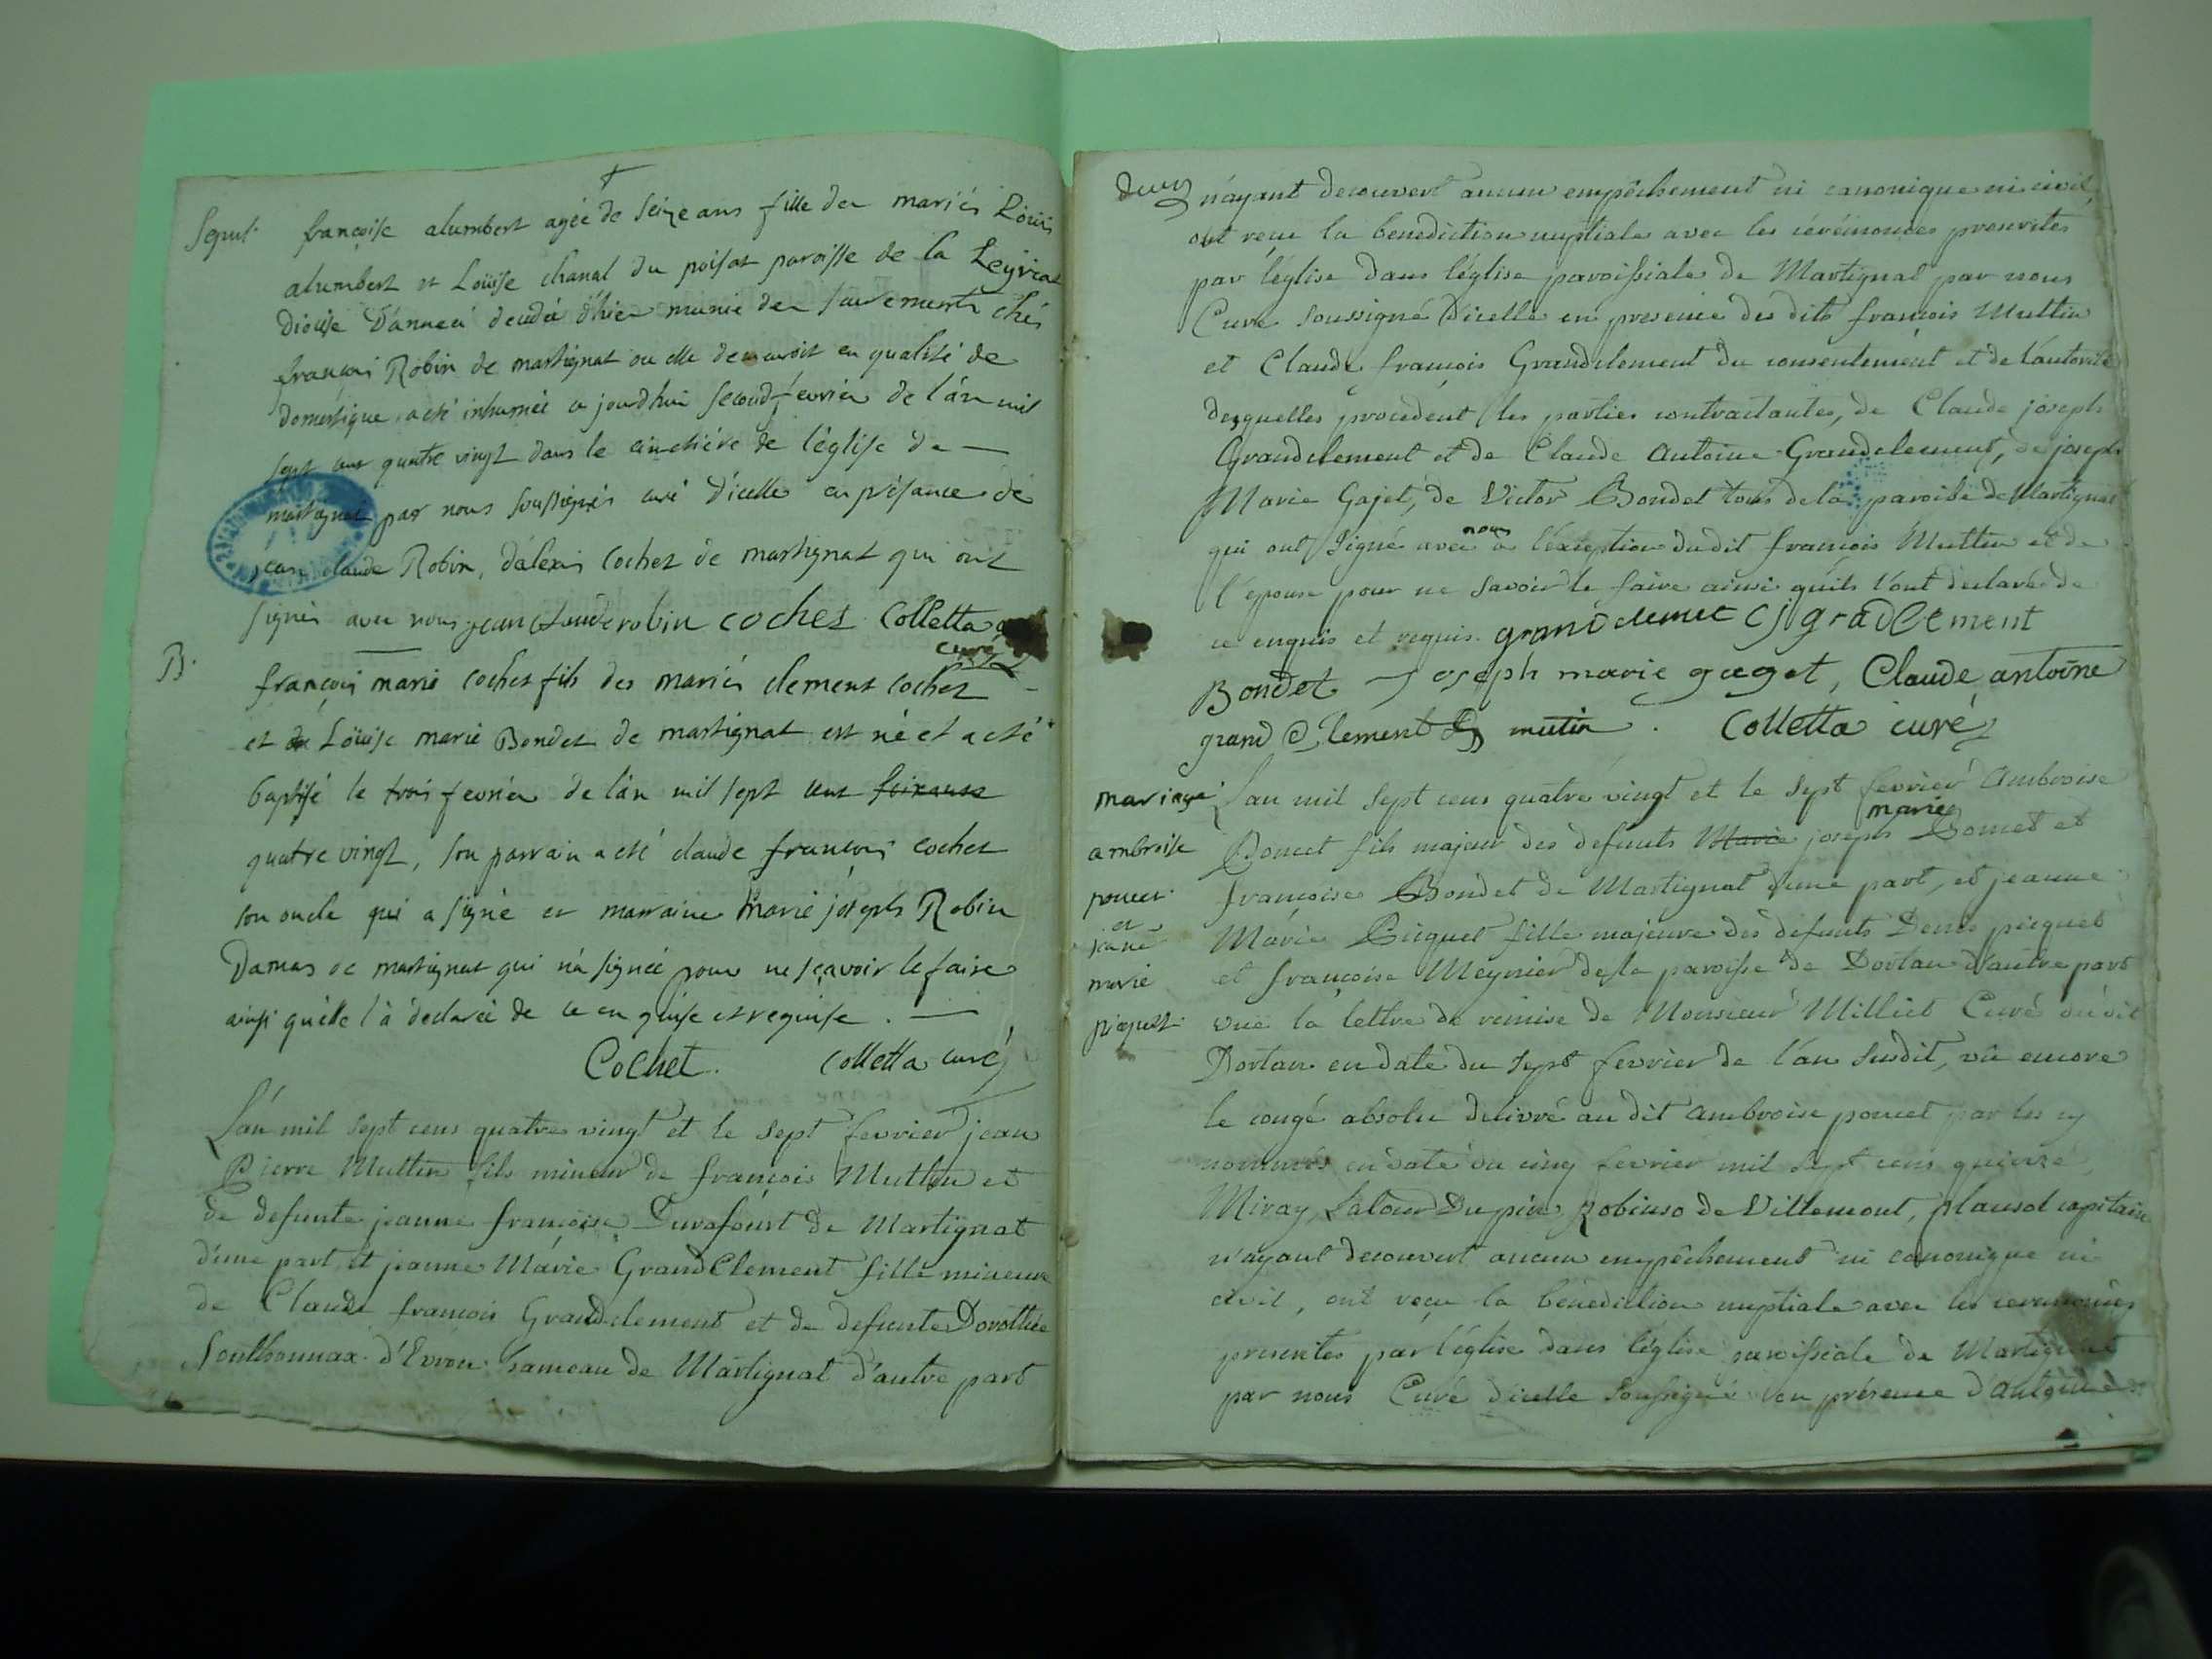 Sepul. françoise alumbert agée de seize ans fille des mariés Loüis
alumbert et Loüise chanal du poisat paroisse de la Leyriat
Diocise D'anneci decedée d'hier munie des sacrements chés
françois Robin de martignat ou elle demeuroit en qualité de
domestique a eté inhumée ce jourdhui second fevrier de l'an mil
sept cent quatre vingt dans le cimetiére de l'église de
martignat par nous soussignés curé d'icelle en présance de
jean claude Robin, d'alexis Cochet de martignat qui ont
signés avec nous jean Claude robin cochet Colletta
curé
B. françois marie cochet fils des mariés clement cochet
et de Loüise marie Bondet de martignat est né et a eté
baptisé le trois fevrier de l'an mil sept cent soixante
quatre vingt, son parrain a eté claude françois cochet
son oncle qui a signé et marraine Marie joseph Robin
Damas de martignat qui n'a signée pour ne sçavoir le faire
ainsi qu'elle l'a declarée de ce enquise et requise.
Cochet. Colletta curé
L'an mil sept cens quatre vingt et le sept fevrier jean
Pierre Muttin fils mineur de françois Muttin et
de defunte jeanne françoise Durafourt de Martignat
d'une part et jeanne Marie GrandClement fille mineure
de Claude françois Grandclement et de defunte Dorothée
Sonthonnax d'Evron hameau de Martignat d'autre part
n'ayant decouvert aucun empêchement ni canonique ni civil,
ont reçu la benediction nuptiale avec les cérémonies prescrites
par l'église dans l'église paroissiale de Martignat par nous
Curé soussigné d'icelle en presence des dits françois Muttin
et Claude françois Grandclement du consentement et de l'autorité
desquelles procedent les parties contractantes, de Claude joseph
Grandclement et de Claude Antoine Grandclement, de joseph
Marie Gajet, de Victor Bondet tous de la paroisse de Martignat
qui ont signé avec nous à l'exception dudit françois Muttin et de
l'épouse pour ne savoir le faire ainsi qu'ils l'ont declaré de
ce enquis et requis. grandclemet Cj gradClement
Bondet Joseph marie gaget, Claude antoine
grand Clement mutin. Colletta curé
mariage L'an mil sept cens quatre vingt et le sept fevrier Ambroise
marie
ambroise Poncet fils majeur des defunts Marie joseph Poncet et
poncet françoise Bondet de Martignat d'une part, et jeanne
et
jane Marie Picquet fille majeure des defunts Denis picquet
marie et françoise Meynier de la paroisse de Dortan d'autre part
piquet vue la lettre de remise de Monsieur Milliet Curé dudit
Dortan en date du sept fevrier de l'an susdit, vû encore
le congé absolu delivré au dit ambroise poncet par les cy
nommés en date du cinq fevrier mil sept cens quinze
Miray, Latour Dupin, Robinso de Villemont, plansol capitaine
n'ayant decouvert aucun empêchement ni canonique ni
civil, ont reçu la bénediction nuptiale avec les ceremonies
prescrites par l'église dans l'église paroissiale de Martignat
par nous Curé d'icelle soussigné en présence d'Antoine